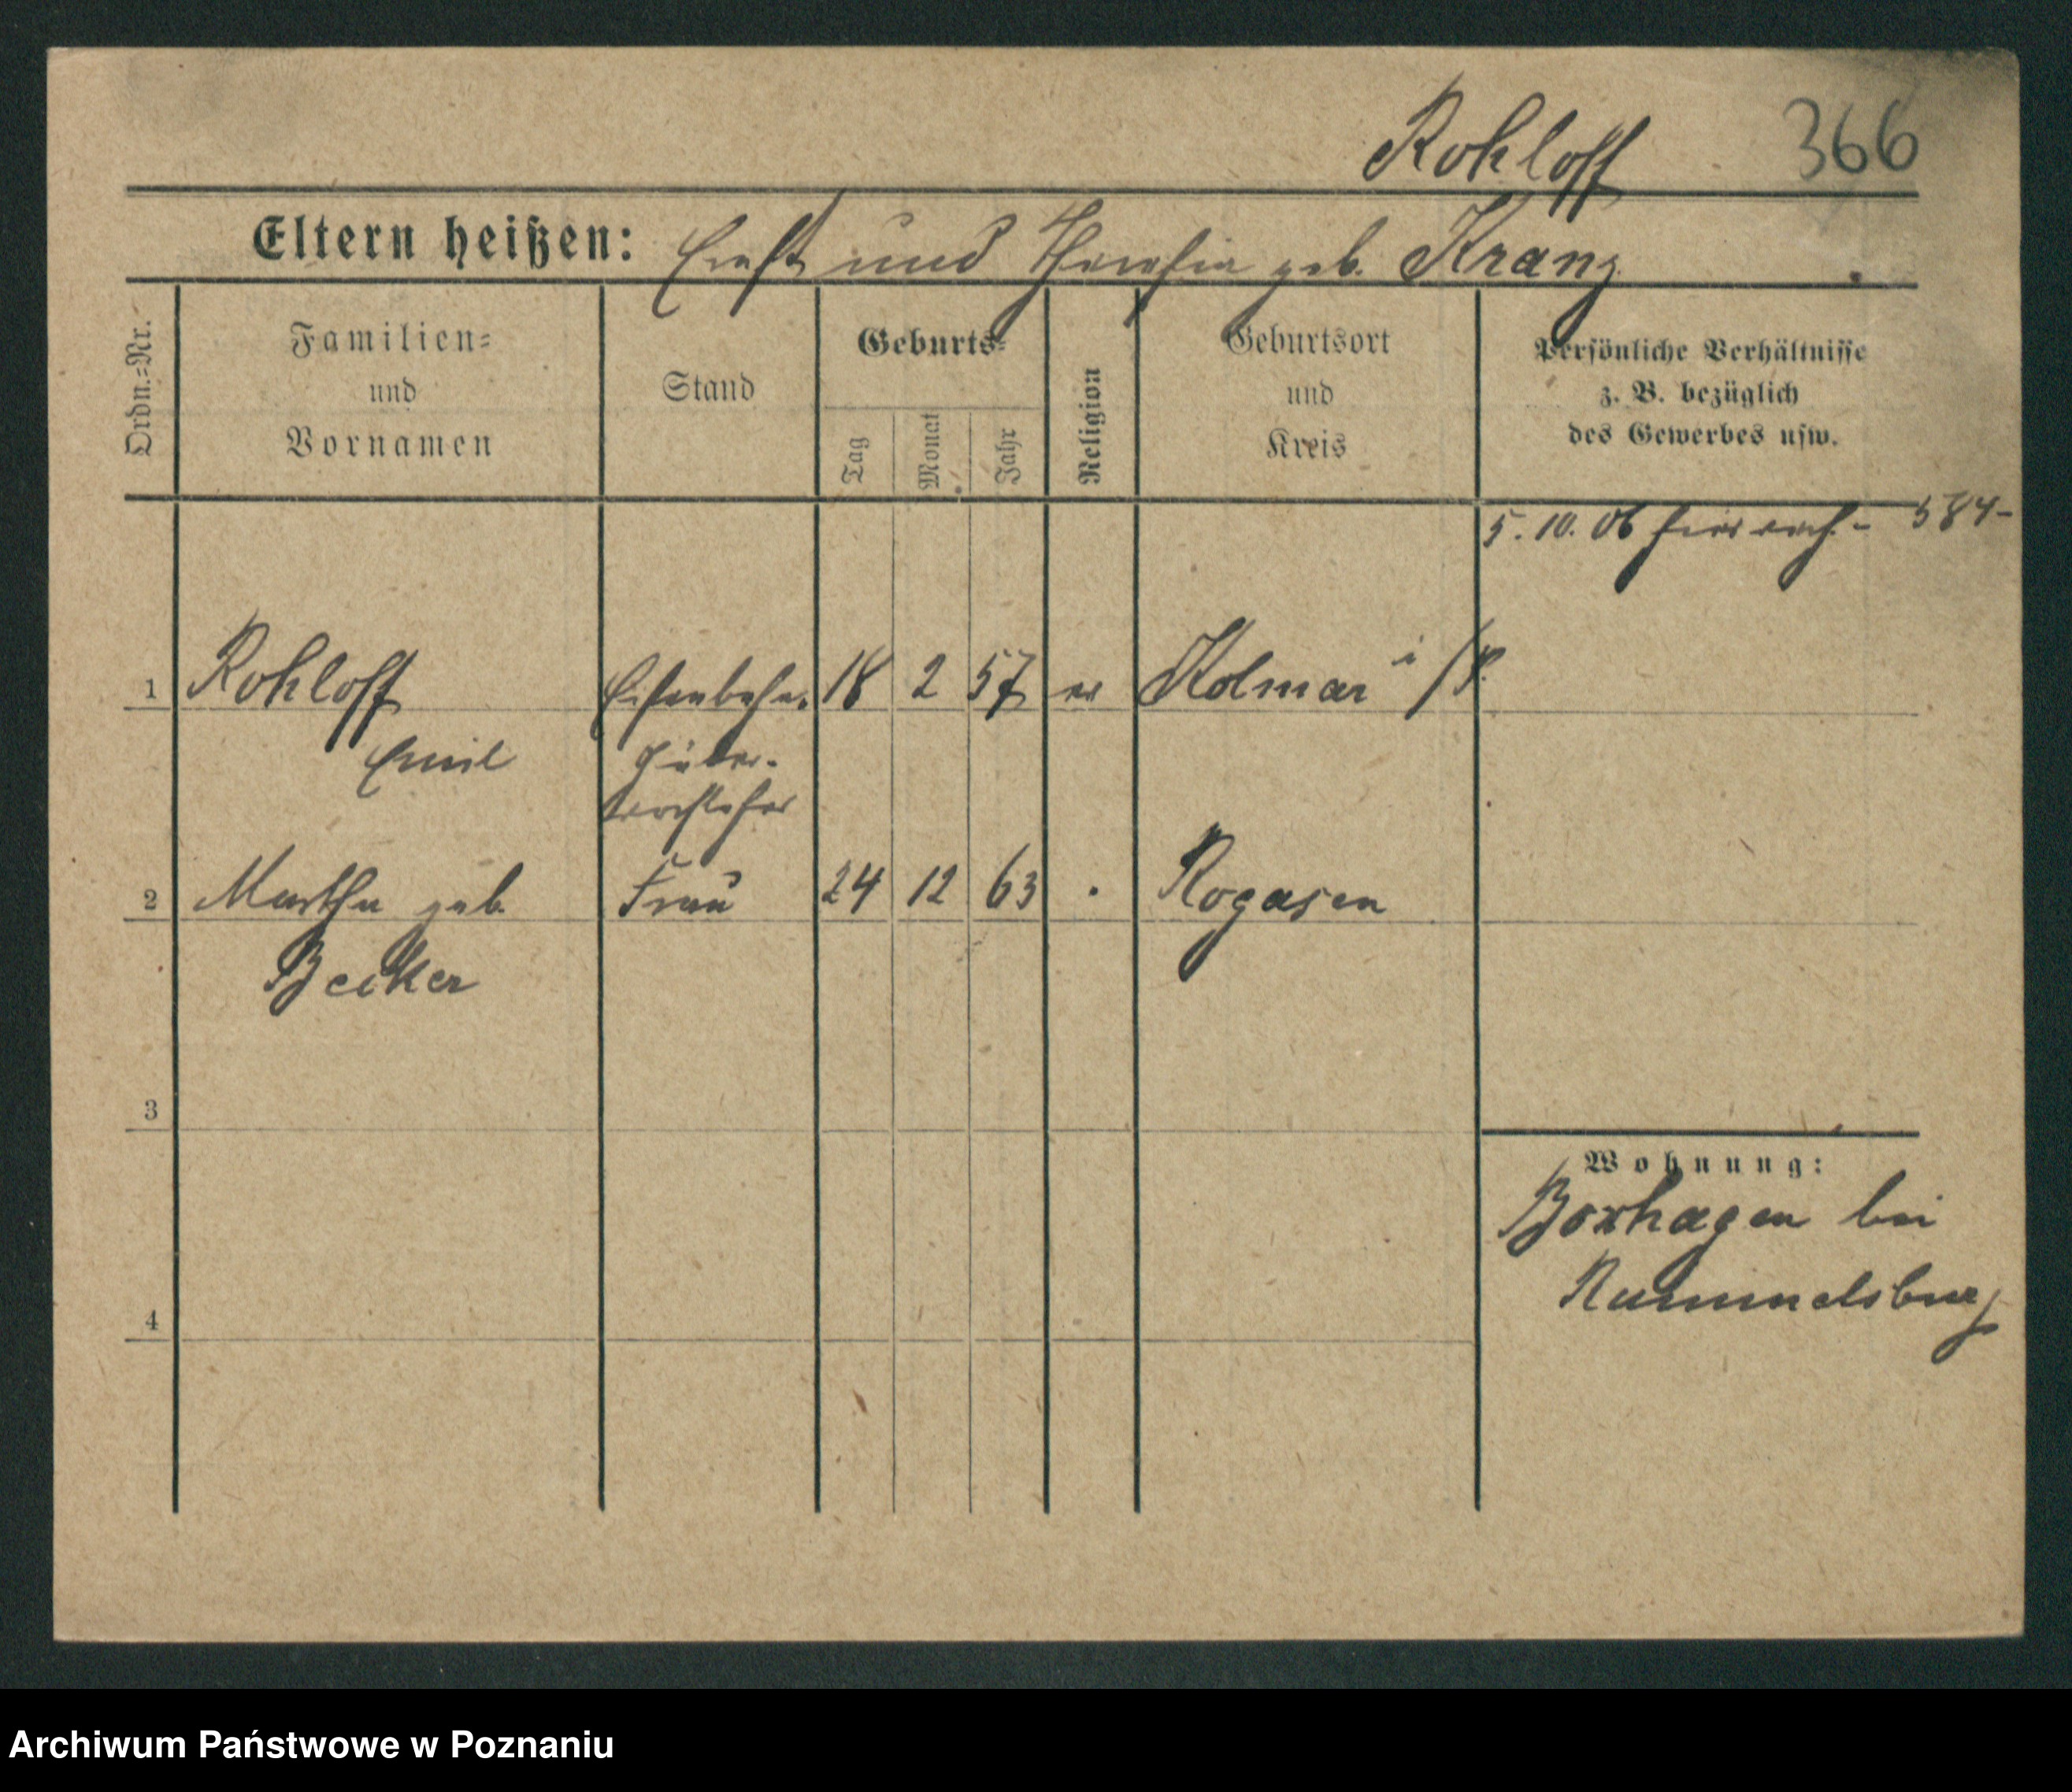 Rohloff 366
Eltern heißen: Ernst und Theresia geb. Kranz
Ordn.=Nr.
Familien=
und
Vornamen
Stand
Geburts=
Tag
Monat
Jahr
Religion
Geburtsort
und
Kreis
Persönliche Verhältnisse
z. B. bezüglich
des Gewerbes usw.
5. 10. 06 584-
1 Rohloff Eisenbahn- 18 2 57 ev Kolmar i/P.
Emil Güter-
vorsteher
2 Martha geb. Frau 24 12 63 . Rogasen
Becker
3
4
Wohnung:
Boxhagen bei
Rummelsburg
Archiwum Państwowe w Poznaniu